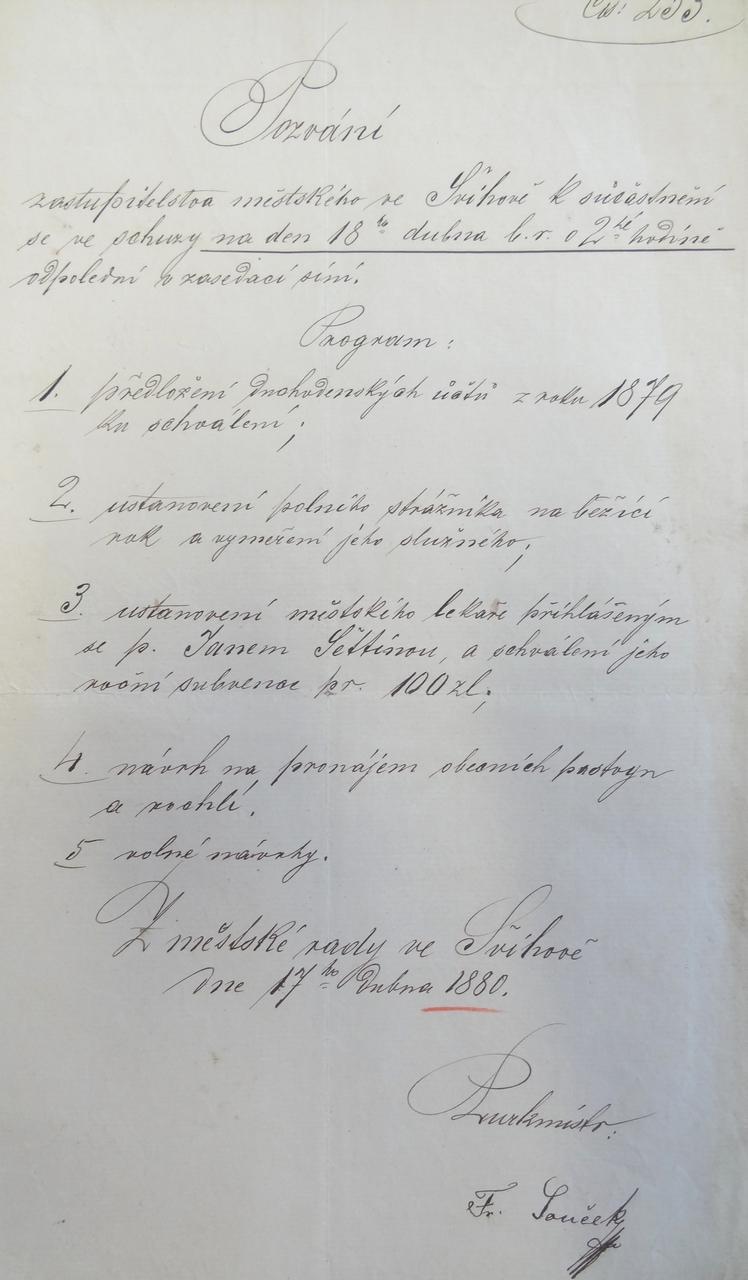 Čís: 233.
Pozvání
zastupitelstva městského ve Švihově k súčastnění
se ve schuzy na den 18ho dubna b. r. o 2hé hodině
odpolední v zasedací síni.
Program:
1. předložení duchodenských účtů z roku 1879
ku schválení;
2. ustanovení polního strážníka na běžící
rok a vyměření jeho služného;
3. ustanovení městského lekaře přihlášeným
se p. Janem Šettinou, a schválení jeho
roční subvence pr. 100 zl;
4. návrh na pronájem obecních pastvyn
a rochlí.
5 volné návrhy.
Z městské rady ve Švihově
dne 17ho dubna 1880.
Purkmistr:
Fr. Souček